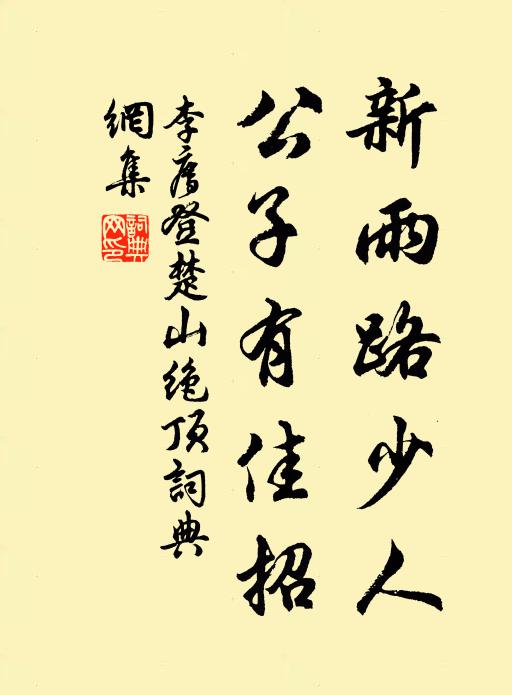 新雨路少人
公子有佳招
李廌登楚山絶頂詞典
網集
詞典
网印